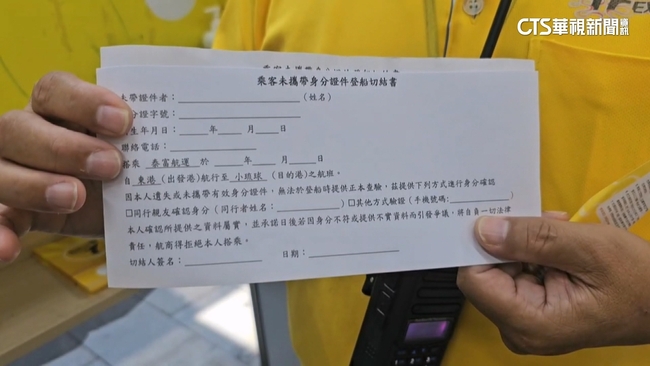 CTS華視新聞資訊
乘客未攜帶身分證件登船切結書
未帶證件者：________（姓名）
分證字號：________
生年月日：____年____月____日
聯絡電話：________
搭乘 泰富航運 於 ____年____月____日
自 東港（出發港）航行至 小琉球（目的港）之航班。
因本人遺失或未攜帶有效身分證件，無法於登船時提供正本查驗，茲提供下列方式進行身分確認
□同行親友確認身分（同行者姓名：________）□其他方式驗證（手機號碼:________）
本人確認所提供之資料屬實，並承諾日後若因身分不符或提供不實資料而引發爭議，將自負一切法律
責任，航商得拒絕本人搭乘。
切結人簽名：________ 日期：________